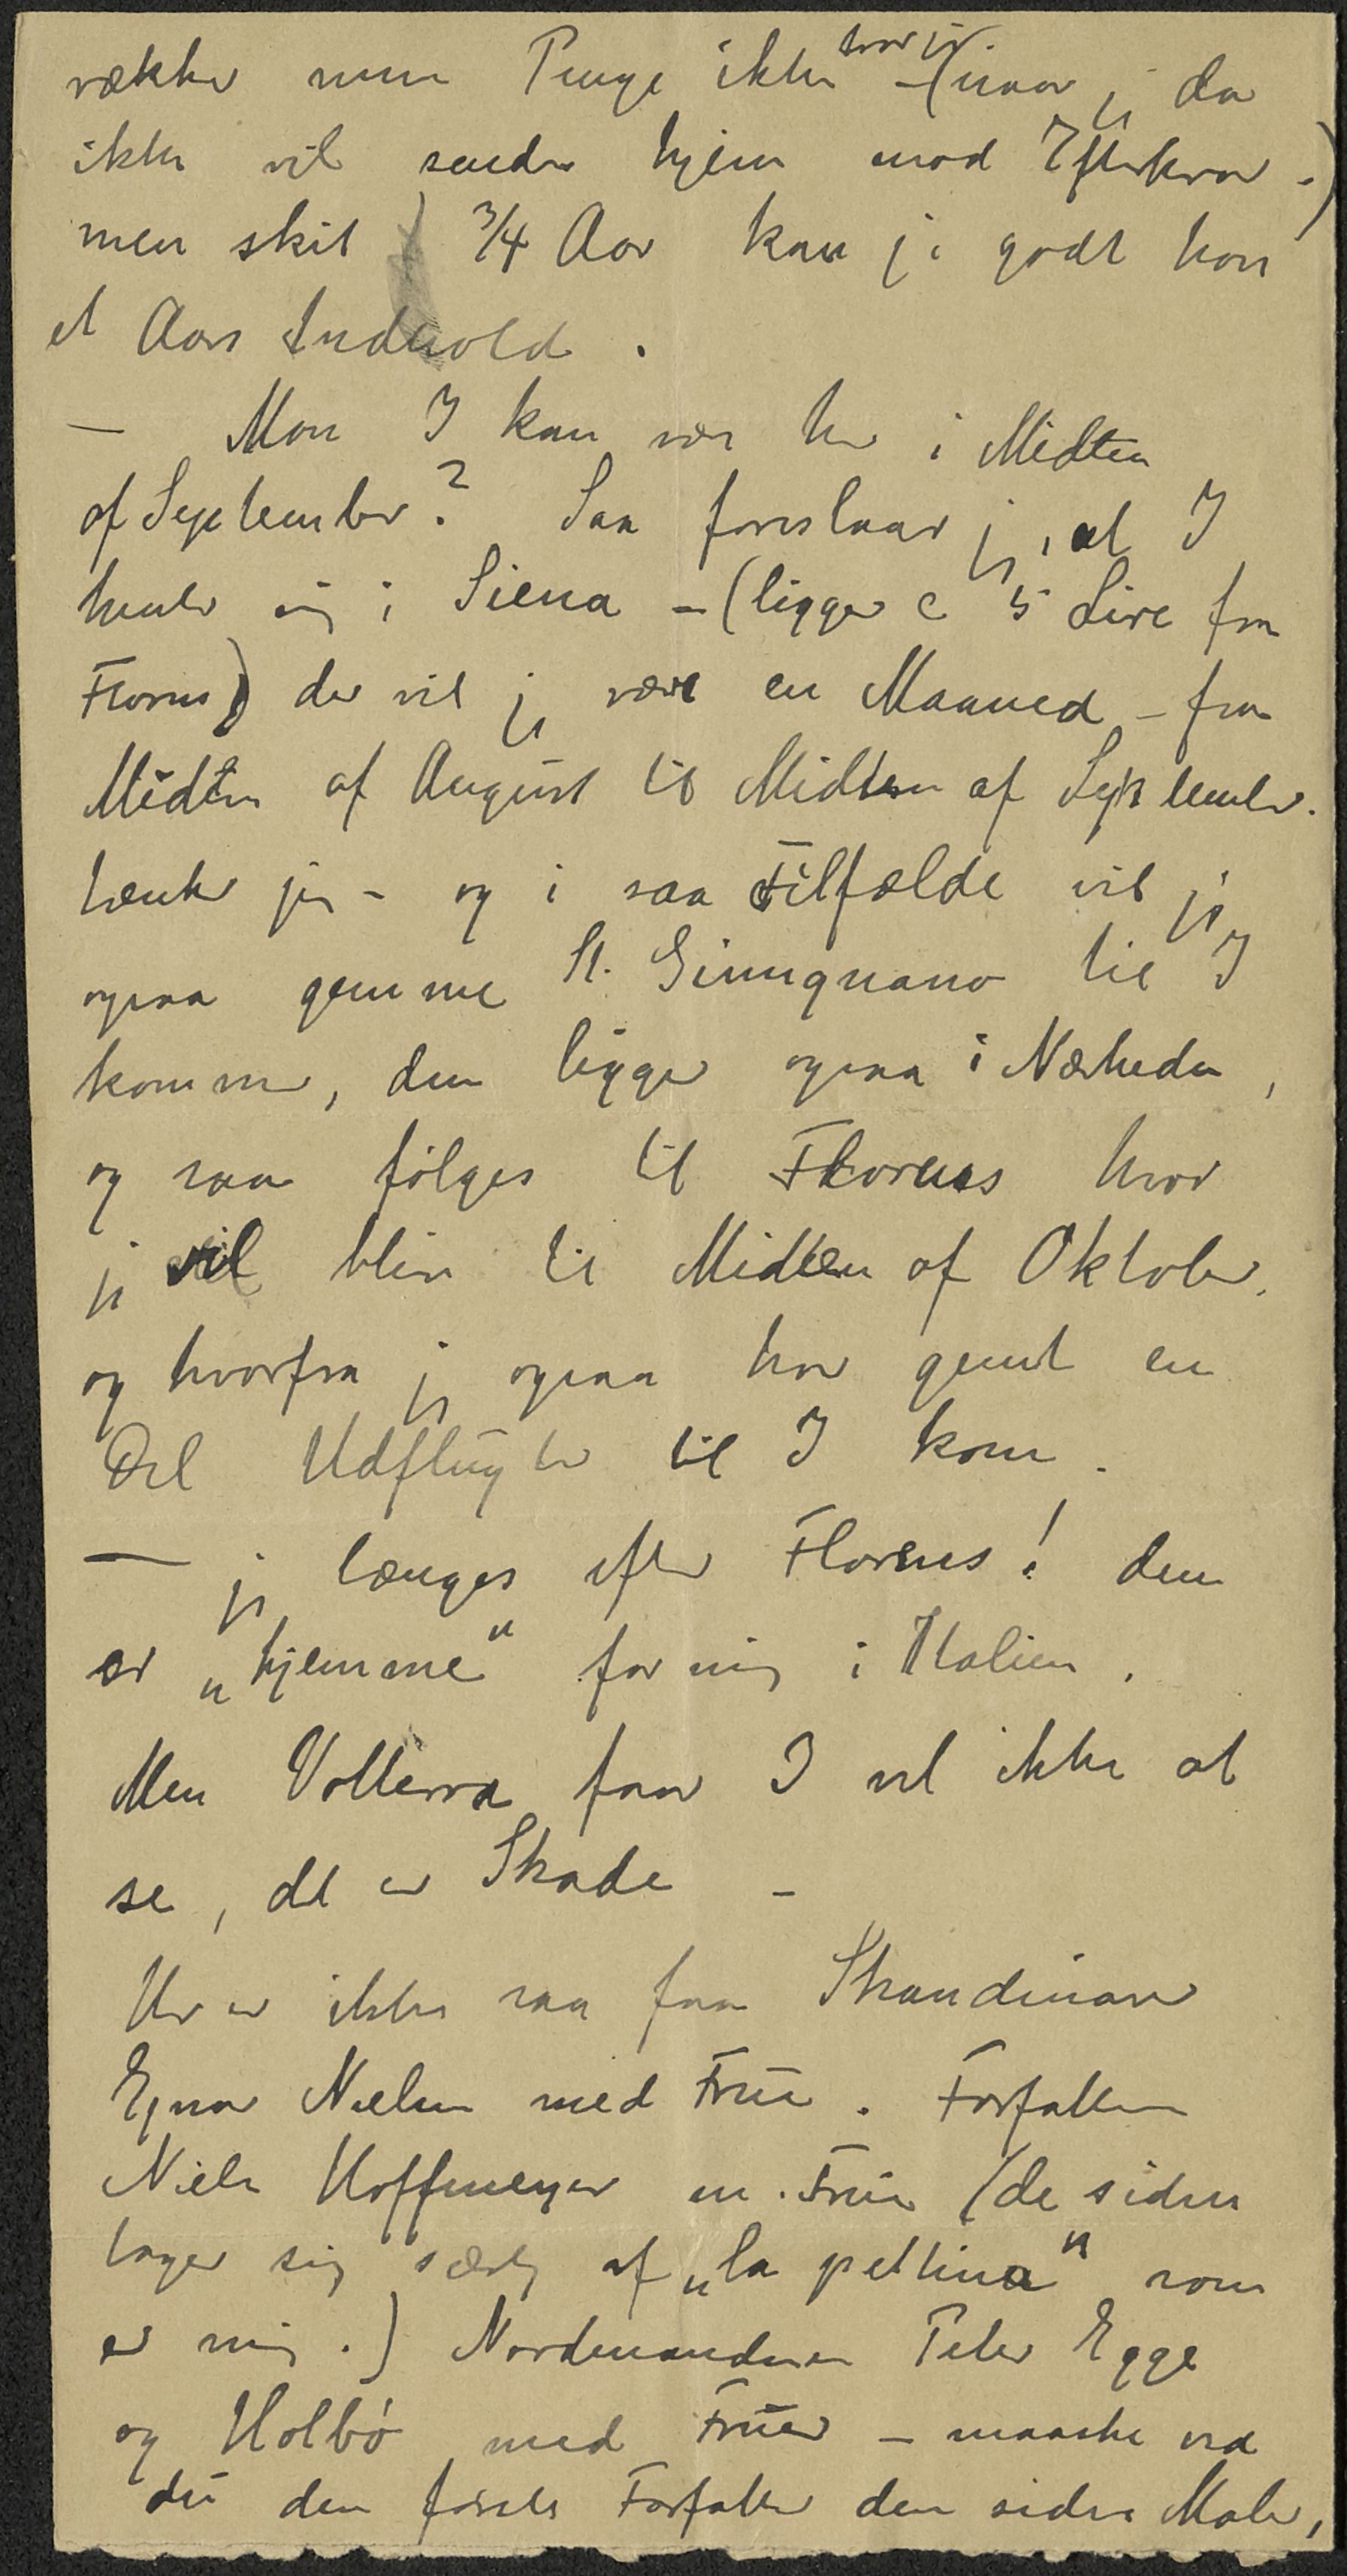 rækker mine Penge ikke – (naar jeg da
ikke vil sendes hjem mod Efterkrav –)
men skit ¾ Aar kan jo godt have
et Aars Indhold.
– Mon I kan være her i Midten
af September? Saa foreslaar jeg, at I
henter mig i Siena – (ligger c 5 Lire fra
Florens) der vil jeg være en Maaned – fra
Midten af August til Midten af September.
tænker jeg – og i saa Tilfælde vil jeg
ogsaa gemme St. Gimignano til I
kommer, den ligger ogsaa i Nærheden,
og saa følges til Florens hvor
jeg vil blive til Midten af Oktober.
og hvorfra jeg ogsaa har gemt en
Del Udflugter til I kom.
– jeg længes efter Florens! den
er „hjemme" for mig i Italien.
Men Volterra faar I vel ikke at
se, det er Skade –
Her er ikke saa faa Skandinaver
Ejnar Nielsen med Frue. Forfatteren
Niels Hoffmeyer m. Frue (de sidste
tager sig særlig af „la pittrice" som
er mig.) Nordmændene Peter Egge
og Holbø med Fruer – maaske ved
du den første Forfatter den anden Maler,